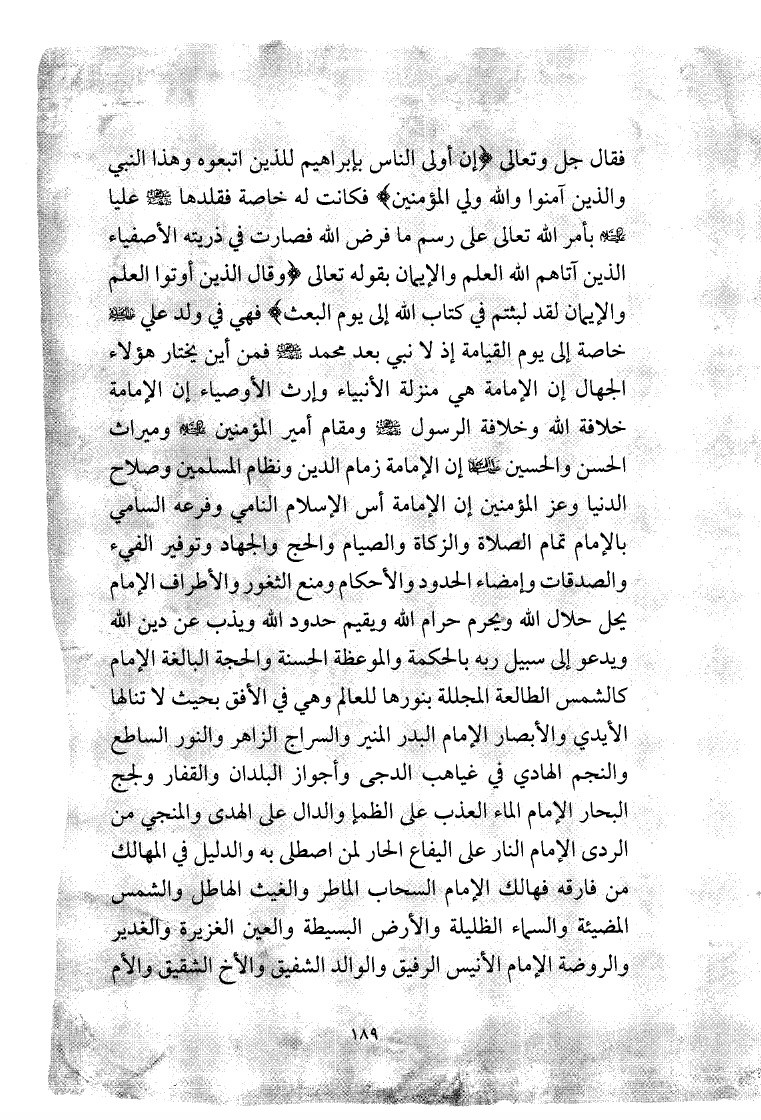 فقال جل وتعالى ﴿إن أولى الناس بإبراهيم للذين اتبعوه وهذا النبي
والذين آمنوا والله ولي المؤمنين﴾ فكانت له خاصة فقلدها ﷺ عليا
عليه السلام بأمر الله تعالى على رسم ما فرض الله فصارت في ذريته الأصفياء
الذين آتاهم الله العلم والإيمان بقوله تعالى ﴿وقال الذين أوتوا العلم
والإيمان لقد لبثتم في كتاب الله إلى يوم البعث﴾ فهي في ولد علي
خاصة إلى يوم القيامة إذ لا نبي بعد محمد ﷺ فمن أين يختار هؤلاء
الجهال إن الإمامة هي منزلة الأنبياء وإرث الأوصياء إن الإمامة
خلافة الله وخلافة الرسول ﷺ ومقام أمير المؤمنين عليه السلام وميراث
الحسن والحسين إن الإمامة زمام الدين ونظام المسلمين وصلاح
الدنيا وعز المؤمنين إن الإمامة أس الإسلام النامي وفرعه السامي
بالإمام تمام الصلاة والزكاة والصيام والحج والجهاد وتوفير الفيء
والصدقات وإمضاء الحدود والأحكام ومنع الثغور والأطراف الإمام
يحل حلال الله ويحرم حرام الله ويقيم حدود الله ويذب عن دين الله
ويدعو إلى سبيل ربه بالحكمة والموعظة الحسنة والحجة البالغة الإمام
كالشمس الطالعة المجللة بنورها للعالم وهي في الأفق بحيث لا تنالها
الأيدي والأبصار الإمام البدر المنير والسراج الزاهر والنور الساطع
والنجم الهادي في غياهب الدجى وأجواز البلدان والقفار ولجج
البحار الإمام الماء العذب على الظمإ والدال على الهدى والمنجي من
الردى الإمام النار على اليفاع الحار لمن اصطلى به والدليل في المهالك
من فارقه فهالك الإمام السحاب الماطر والغيث الهاطل والشمس
المضيئة والسماء الظليلة والأرض البسيطة والعين الغزيرة والغدير
والروضة الإمام الأنيس الرفيق والوالد الشفيق والأخ الشقيق والأم
١٨٩